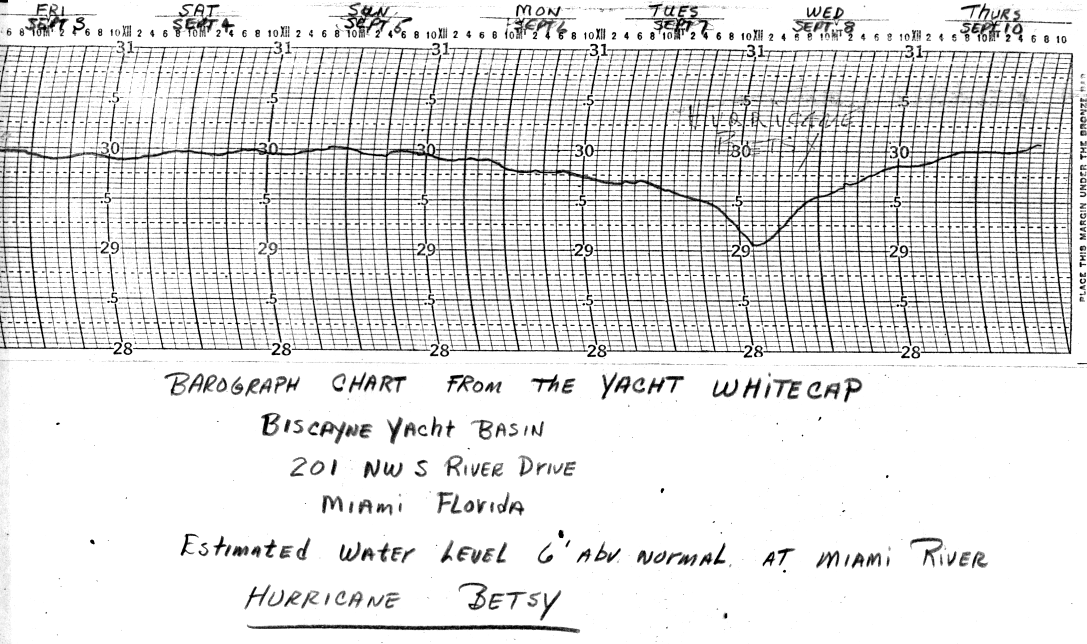 FRI SAT SUN MON TUES WED THURS
SEPT 3 SEPT 4 SEPT 5 SEPT 6 SEPT 7 SEPT 8 SEPT 10
6 8 10 M 2 4 6 8 10 XII 2 4 6 8 10 M 2 4 6 8 10 XII 2 4 6 8 10 M 2 4 6 8 10 XII 2 4 6 8 10 M 2 4 6 8 10 XII 2 4 6 8 10 M 2 4 6 8 10 XII 2 4 6 8 10 M 2 4 6 8 10 XII 2 4 6 8 10 M 2 4 6 8 10
31 31 31 31 31 31
.5 .5 .5 .5 .5 .5
HURRICANE
BETSY
30 30 30 30 30 30
.5 .5 .5 .5 .5 .5
29 29 29 29 29 29
.5 .5 .5 .5 .5 .5
28 28 28 28 28 28
PLACE THIS MARGIN UNDER THE BRONZE BAR
BAROGRAPH CHART FROM THE YACHT WHITECAP
BISCAYNE YACHT BASIN
201 NW S RIVER DRIVE
MIAMI FLORIDA
ESTIMATED WATER LEVEL 6' ABV NORMAL. AT MIAMI RIVER
HURRICANE BETSY